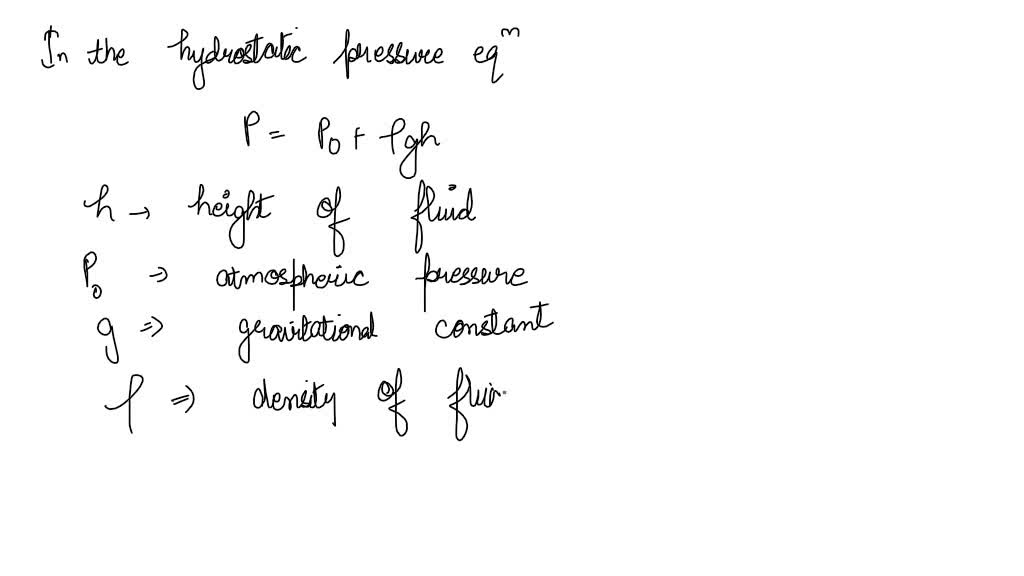 In the hydrostatic pressure eqⁿ
P = P₀ + ρgh
h → height of fluid
P₀ ⇒ atmospheric pressure
g ⇒ gravitational constant
ρ ⇒ density of flui